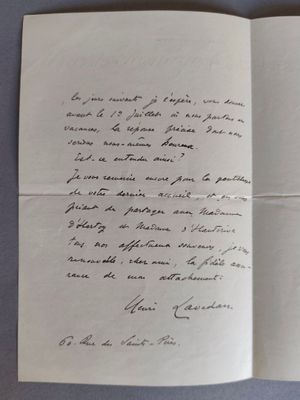 les jours suivants je l'espère, vous donner
avant le 12 juillet où nous partons en
vacances, la réponse précise dont nous
serions nous-mêmes heureux.
Est-ce entendu ainsi?
Je vous remercie encore pour la gentillesse
de votre dernier accueil, et en vous
priant de partager avec Madame
d' et Madame d'
tous nos affectueux souvenirs, je vous
renouvelle, cher ami, la fidèle assu-
rance de mon attachement.
Henri Lavedan
60. Rue des Saints-Pères.